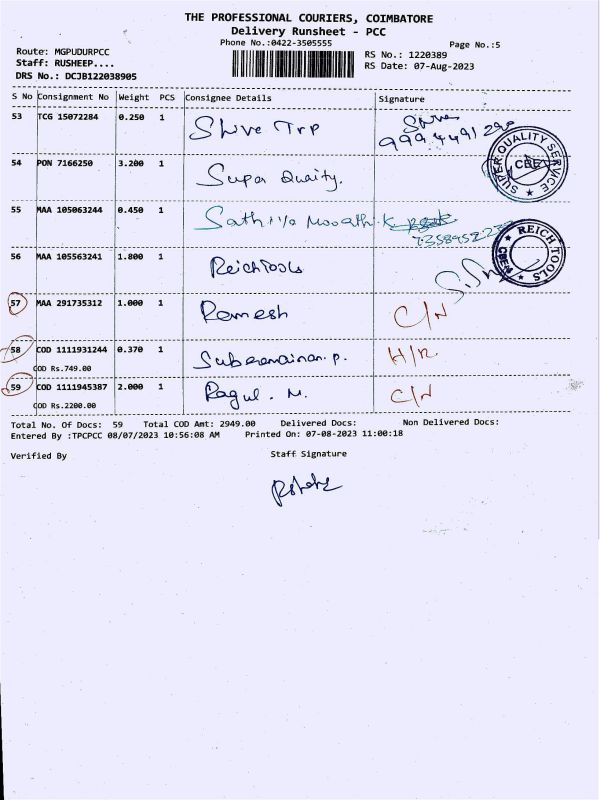 THE PROFESSIONAL COURIERS, COIMBATORE
Delivery Runsheet - PCC
Phone No.:0422-3505555
Page No.:5
Route: MGPUDURPCC
RS No.: 1220389
Staff: RUSHEEP....
RS Date: 07-Aug-2023
DRS No.: DCJB122038905
S No Consignment No Weight PCS Consignee Details Signature
53 TCG 15072284 0.250 1 Shive Trp
SUPER QUALITY SERVICE
CBE
54 PON 7166250 3.200 1 Supar Quaity.
55 MAA 105063244 0.450 1
56 MAA 105563241 1.800 1 ReichTools
REICH TOOLS
57 MAA 291735312 1.000 1 Ramesh C/N
58 COD 1111931244 0.370 1 H/R
COD Rs.749.00
59 COD 1111945387 2.000 1 Ragul. M. C/N
COD Rs.2200.00
Total No. Of Docs: 59 Total COD Amt: 2949.00 Delivered Docs: Non Delivered Docs:
Entered By :TPCPCC 08/07/2023 10:56:08 AM Printed On: 07-08-2023 11:00:18
Verified By Staff Signature